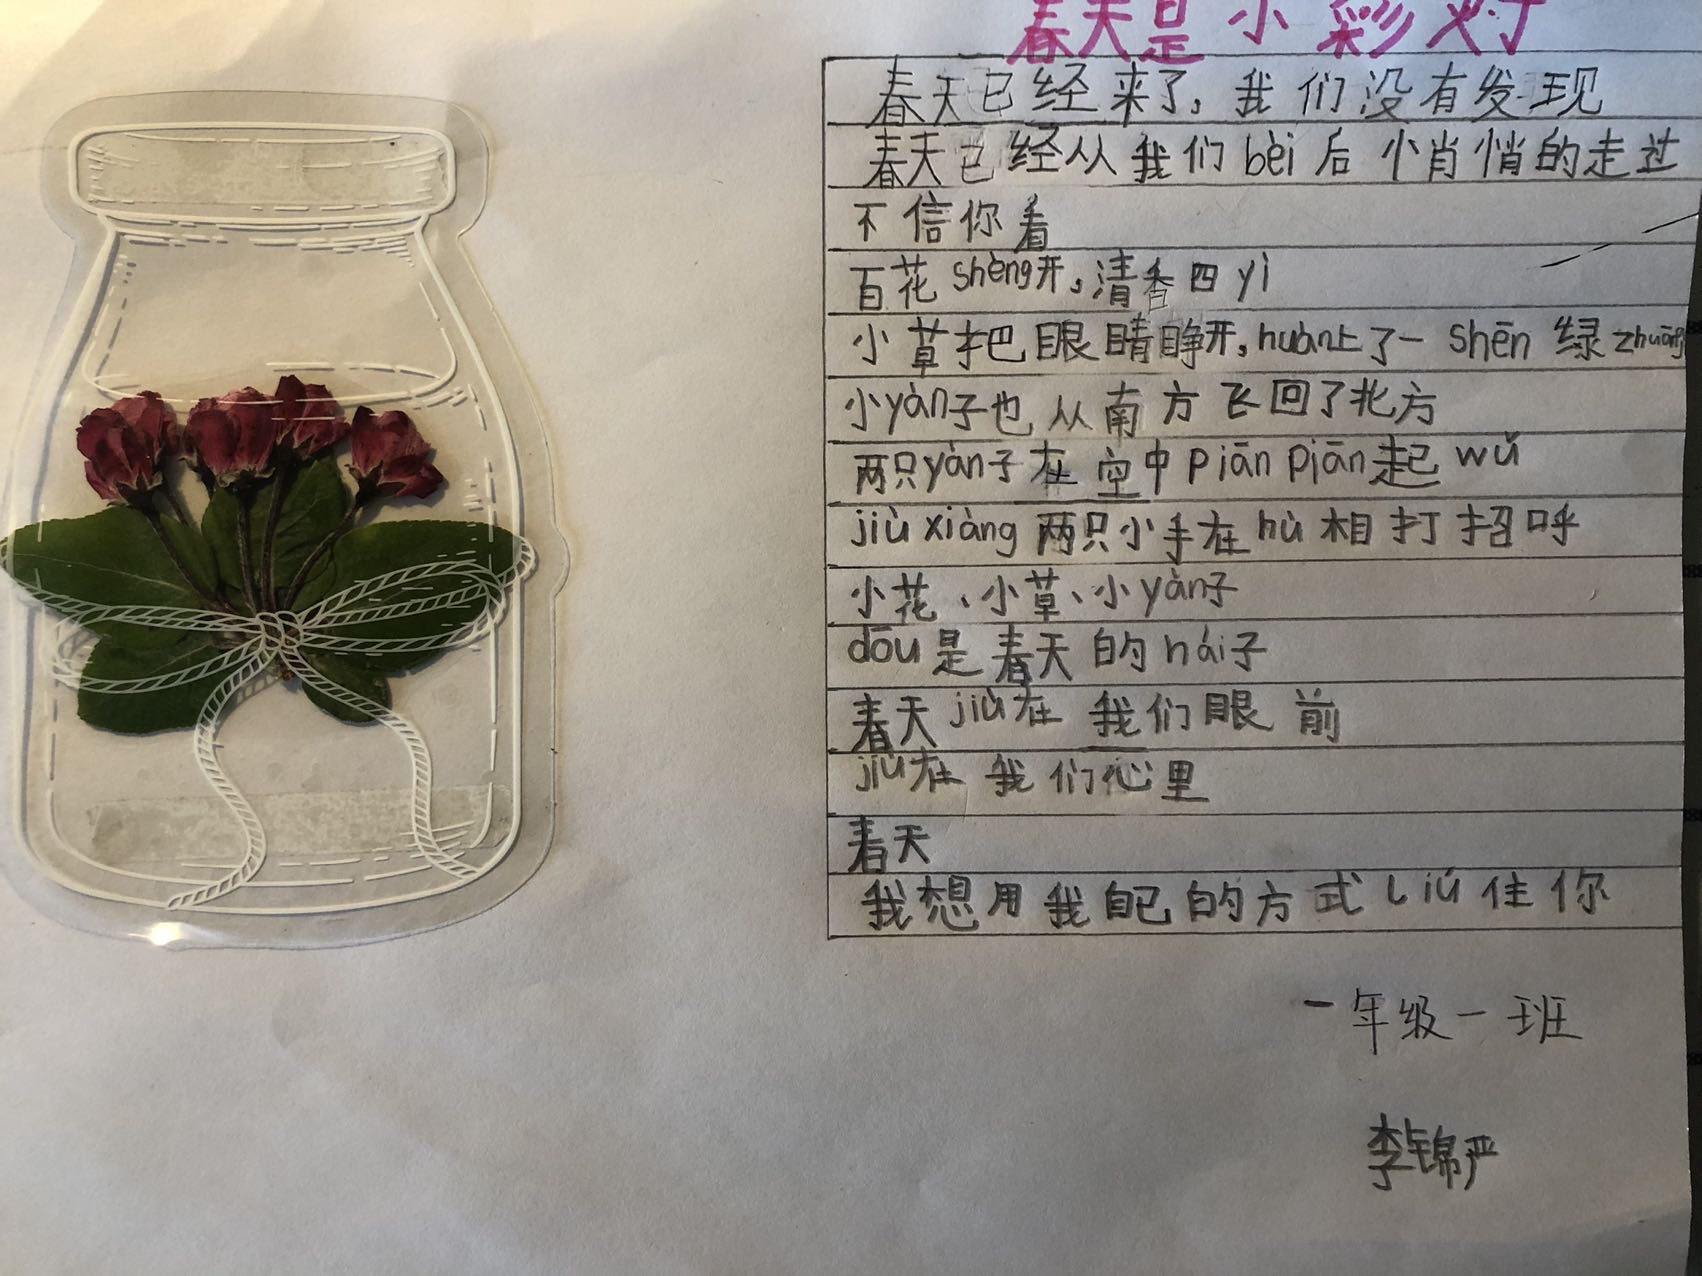 春天是小彩灯
春天已经来了，我们没有发现
春天已经从我们bèi后小肖悄的走过
不信你看
百花shèng开，清香四yì
小草把眼睛睁开，huàn上了一shēn绿zhuāng
小yàn子也从南方飞回了北方
两只yàn子在空中piān piān起wǔ
jiù xiàng两只小手在hù相打招呼
小花、小草、小yàn子
dōu是春天的hái子
春天jiù在我们眼前
jiù在我们心里
春天
我想用我自己的方式liú住你
一年级一班
李锦严